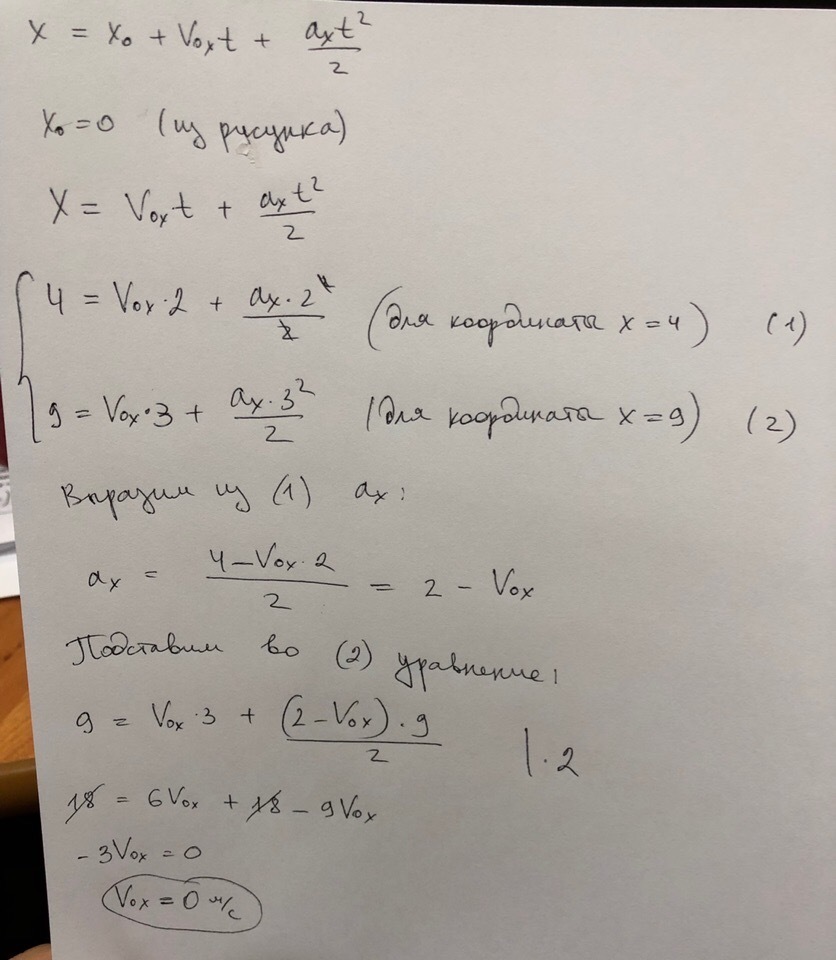 x = x₀ + V₀ₓt + aₓt²/2
x₀ = 0 (из рисунка)
X = V₀ₓt + aₓt²/2
4 = V₀ₓ·2 + aₓ·2²/2 (для координаты x = 4) (1)
9 = V₀ₓ·3 + aₓ·3²/2 (для координаты x = 9) (2)
Выразим из (1) aₓ:
aₓ = (4 − V₀ₓ·2)/2 = 2 − V₀ₓ
Подставим во (2) уравнение:
9 = V₀ₓ·3 + (2 − V₀ₓ)·9/2 |·2
18 = 6V₀ₓ + 18 − 9V₀ₓ
−3V₀ₓ = 0
V₀ₓ = 0 м/с